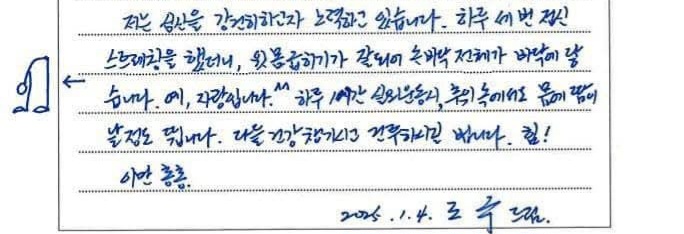 저는 심신을 강건히하고자 노력하고 있습니다. 하루 세 번 접신
스트레칭을 했더니, 윗몸굽히기가 잘되어 손바닥 전체가 바닥에 닿
습니다. 예, 자랑입니다.^^ 하루 1시간 실외운동시, 추위 속에서도 몸에 땀이
날 정도 뜁니다. 다들 건강 챙기시고 건투하시길 빕니다. 힘!
이만 총총.
2025.1.4. 조 국 드림.